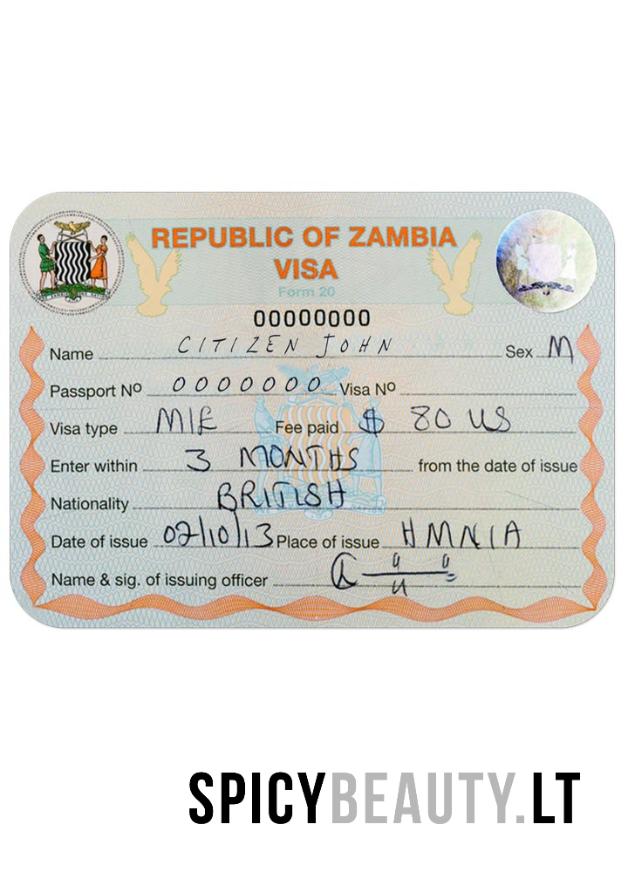 REPUBLIC OF ZAMBIA
VISA
Form 20
00000000
Name CITIZEN JOHN Sex M
Passport Nº 0000000 Visa Nº
Visa type M/E Fee paid $ 80 US
Enter within 3 MONTHS from the date of issue
Nationality BRITISH
Date of issue 02/10/13 Place of issue HMNIA
Name & sig. of issuing officer
SPICYBEAUTY.LT